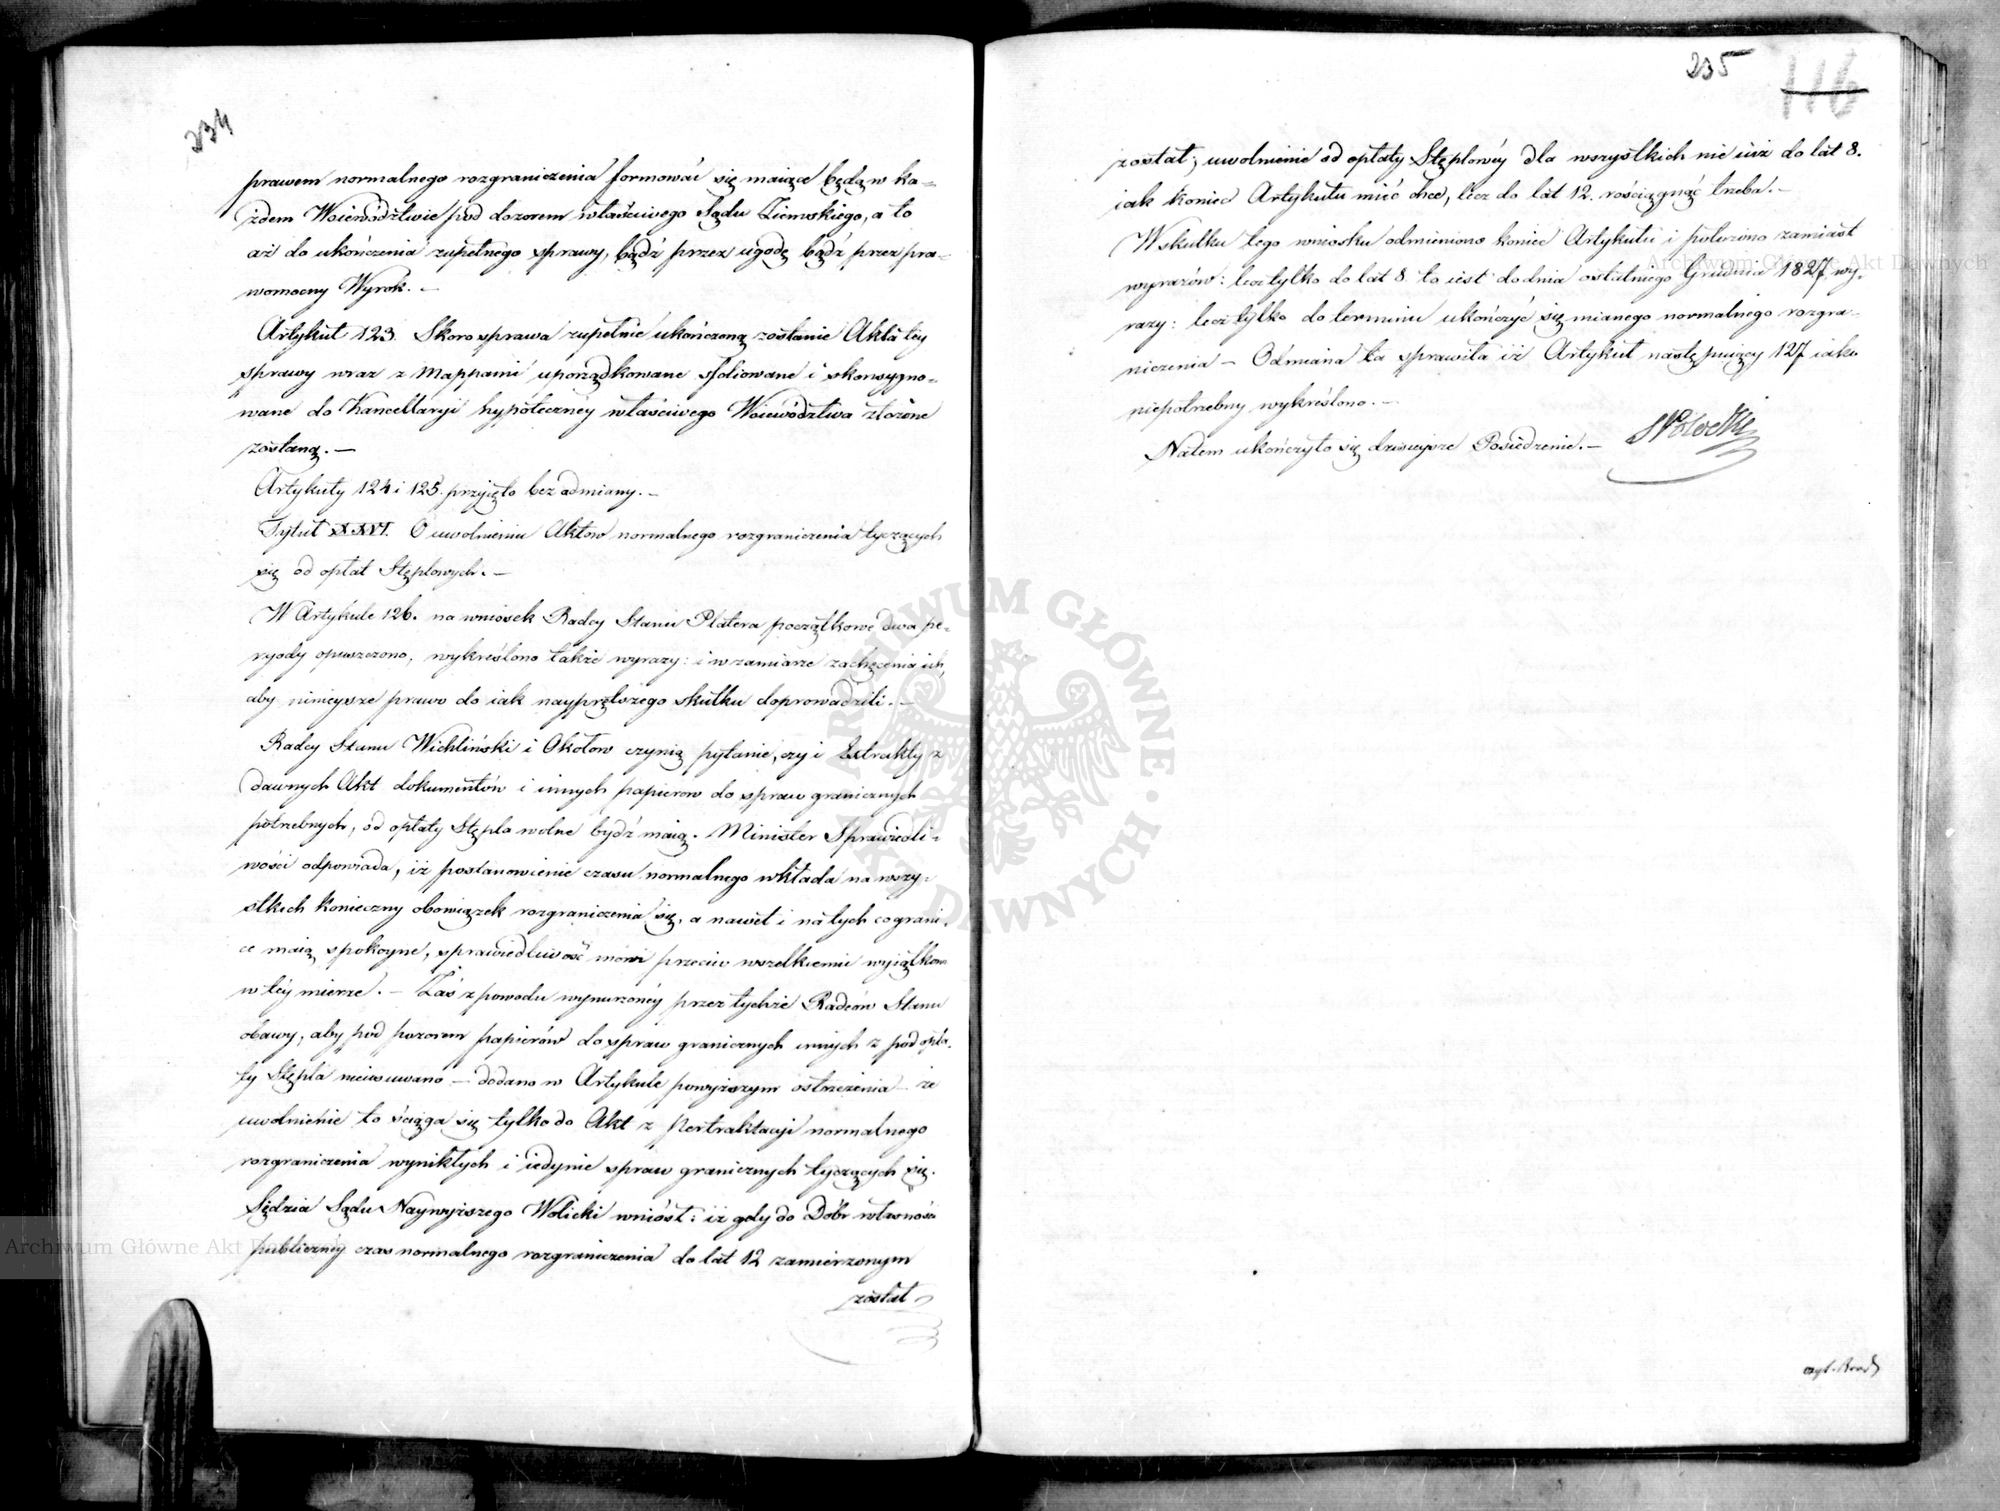 234
prawem normalnego rozgraniczenia formować się maiące będą w ka-
żdem Woiewództwie pod dozorem właściwego Sądu Ziemskiego, a to
aż do ukończenia zupełnego sprawy, bądź przez ugodę bądź przez pra-
womocny Wyrok. -
Artykuł 123. Skoro sprawa zupełnie ukończoną zostanie Akta tey
sprawy wraz z Mappami uporządkowane sfoliowane i skonsygno-
wane do Kancellaryi hypoteczney właściwego Woiewództwa złożone
zostaną. -
Artykuły 124 i 125. przyięto bez odmiany. -
Tytuł XXVI. O uwolnieniu Aktow normalnego rozgraniczenia tyczących
się od opłat Stęplowych. -
W Artykule 126. na wniosek Radcy Stanu Platera początkowe dwa pe-
ryody opuszczono, wykreślono także wyrazy: i w zamiarze zachęcenia ich,
aby ninieysze prawo do iak nayprętszego skutku doprowadzili. -
Radcy Stanu Wichliński i Okołow czynią pytanie, czy i Extrakty z
dawnych Akt dokumentów i innych papierow do spraw granicznych
potrzebnych, od opłaty Stępla wolne bydź maią. Minister Sprawiedli-
wości odpowiada, iż postanowienie czasu normalnego wkłada na wszy-
stkich konieczny obowiązek rozgraniczenia się, a nawet i na tych co grani-
ce maią spokoyne, sprawiedliwość mówi przeciw wszelkiemu wyiątkowi
w téy mierze. - Zaś z powodu wynurzonéy przez tychże Radców Stanu
obawy, aby pod pozorem papierów do spraw granicznych innych z pod opła-
ty Stępla nieusuwano - dodano w Artykule powyższym ostrzeżenia - że
uwolnienie to ściąga się tylko do Akt z Pertraktacyi normalnego
rozgraniczenia wynikłych i iedynie spraw granicznych tyczących się.
Sędzia Sądu Naywyższego Wolicki wniósł: iż gdy do Dóbr własności
publiczney czas normalnego rozgraniczenia do lat 12 zamierzonym
został
235
116
został; uwolnienie od opłaty Stęplowéy dla wszystkich nie iuż do lat 8.
iak koniec Artykułu mieć chce, lecz do lat 12. rościągnąć trzeba. -
W skutku tego wniosku odmieniono koniec Artykułu i położono zamiast
wyrazów: lecz tylko do lat 8 to iest do dnia ostatniego Grudnia 1827. wy-
razy: lecz tylko do terminu ukończyć się mianego normalnego rozgra-
niczenia - Odmiana ta sprawiła iż Artykuł następuiący 127 iako
niepotrzebny wykreślono. -
Natem ukończyło się dzisieysze Posiedzenie. -
Archiwum Główne Akt Dawnych
Archiwum Główne Akt Dawnych
ARCHIWUM GŁÓWNE AKT DAWNYCH